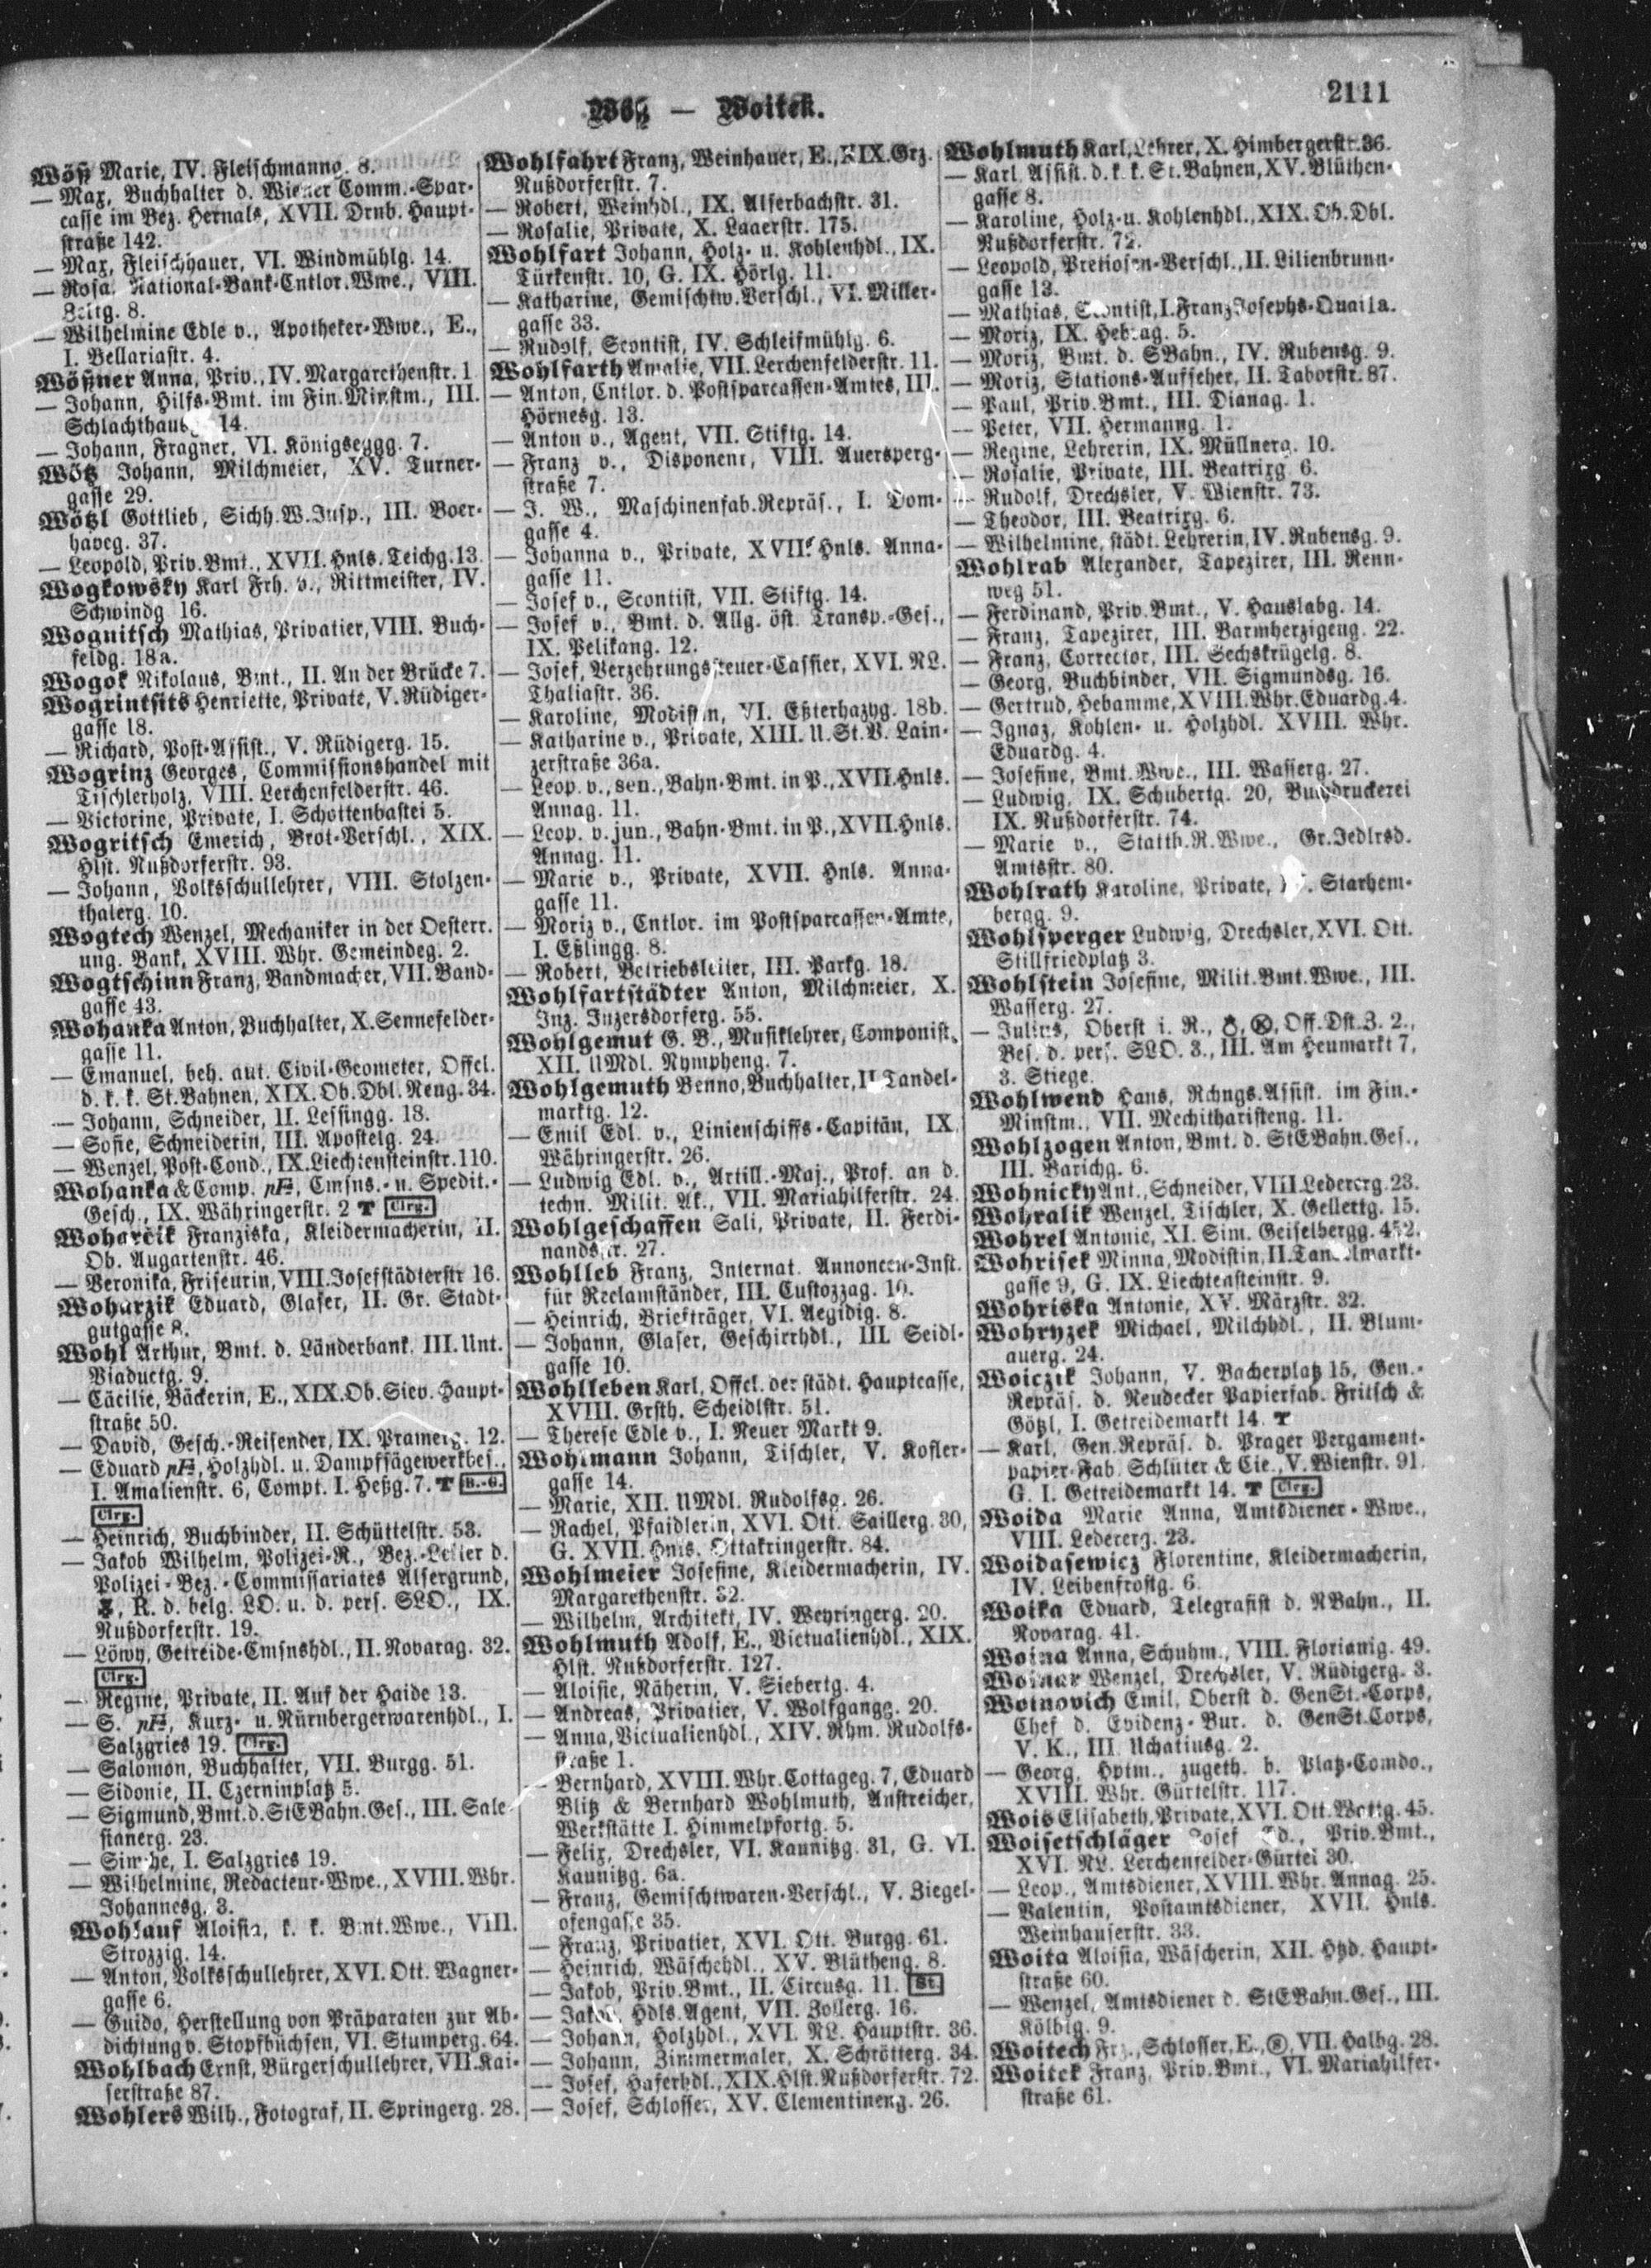 Wöß — Woitek.
2111
Wöß Marie, IV. Fleischmanng. 8.
— Max, Buchhalter d. Wiener Comm.-Spar-
casse im Bez. Hernals, XVII. Drnb. Haupt-
straße 142.
— Max, Fleischhauer, VI. Windmühlg. 14.
— Rosa, National-Bank-Cntlor.Wwe., VIII.
Zeltg. 8.
— Wilhelmine Edle v., Apotheker-Wwe., E.,
I. Bellariastr. 4.
Wößner Anna, Priv., IV. Margarethenstr. 1
— Johann, Hilfs-Bmt. im Fin.Minstm., III.
14.
— Johann, Fragner, VI. Königseggg. 7.
Wötz Johann, Milchmeier, XV. Turner-
gasse 29.
Wötzl Gottlieb, Sichh.W.Insp., III. Boer-
haveg. 37.
— Leopold, Priv.Bmt., XVII. Hnls. Teichg. 13.
Wogkowsky Karl Frh. v., Rittmeister, IV.
Schwindg. 16.
Wognitsch Mathias, Privatier, VIII. Buch-
feldg. 18a.
Wogok Nikolaus, Bmt., II. An der Brücke 7.
Wogrintsits Henriette, Private, V. Rüdiger-
gasse 18.
— Richard, Post-Assist., V. Rüdigerg. 15.
Wogrinz Georges, Commissionshandel mit
Tischlerholz, VIII. Lerchenfelderstr. 46.
— Victorine, Private, I. Schottenbastei 5.
Wogritsch Emerich, Brot-Verschl., XIX.
Hlst. Nußdorferstr. 93.
— Johann, Volksschullehrer, VIII. Stolzen-
thalerg. 10.
Wogtech Wenzel, Mechaniker in der Oesterr.
ung. Bank, XVIII. Whr. Gemeindeg. 2.
Wogtschinn Franz, Bandmacher, VII. Band-
gasse 43.
Wohanka Anton, Buchhalter, X. Sennefelder-
gasse 11.
— Emanuel, beh. aut. Civil-Geometer, Offcl.
d. k. k. St.Bahnen, XIX. Ob. Dbl. Reng. 34.
— Johann, Schneider, II. Lessingg. 18.
— Sofie, Schneiderin, III. Apostelg. 24.
— Wenzel, Post-Cond., IX. Liechtensteinstr. 110.
Wohanka & Comp. pF, Cmsns.- u. Spedit.-
Gesch., IX. Währingerstr. 2 T Clrg.
Woharcik Franziska, Kleidermacherin, II.
Ob. Augartenstr. 46.
— Veronika, Friseurin, VIII. Josefstädterstr 16.
Woharzik Eduard, Glaser, II. Gr. Stadt-
gutgasse 8.
Wohl Arthur, Bmt. d. Länderbank, III. Unt.
Viaductg. 9.
— Cäcilie, Bäckerin, E., XIX. Ob. Siev. Haupt-
straße 50.
— David, Gesch.-Reisender, IX. Pramerg. 12.
— Eduard pF, Holzhdl. u. Dampfsägewerkbes.,
I. Amalienstr. 6, Compt. I. Heßg. 7. T B.-G.
Clrg.
— Heinrich, Buchbinder, II. Schüttelstr. 53.
— Jakob Wilhelm, Polizei-R., Bez.-Leiter d.
Polizei-Bez.-Commissariates Alsergrund,
R. d. belg. LO. u. d. pers. SLO., IX.
Nußdorferstr. 19.
— Löwy, Getreide-Cmsnshdl., II. Novarag. 32.
Clrg.
— Regine, Private, II. Auf der Haide 13.
— S. pF, Kurz- u. Nürnbergerwarenhdl., I.
Salzgries 19. Clrg.
— Salomon, Buchhalter, VII. Burgg. 51.
— Sidonie, II. Czerninplatz 5.
— Sigmund, Bmt. d. StEBahn.Ges., III. Sale
sianerg. 23.
— Simche, I. Salzgries 19.
— Wilhelmine, Redacteur-Wwe., XVIII. Whr.
Johannesg. 3.
Wohlauf Aloisia, k. k. Bmt.Wwe., VIII.
Strozzig. 14.
— Anton, Volksschullehrer, XVI. Ott. Wagner-
gasse 6.
— Guido, Herstellung von Präparaten zur Ab-
dichtung v. Stopfbüchsen, VI. Stumperg. 64.
Wohlbach Ernst, Bürgerschullehrer, VII. Kai-
serstraße 87.
Wohlers Wilh., Fotograf, II. Springerg. 28.
Wohlfahrt Franz, Weinhauer, E., XIX. Grz.
Nußdorferstr. 7.
— Robert, Weinhdl., IX. Alserbachstr. 31.
— Rosalie, Private, X. Laaerstr. 175.
Wohlfart Johann, Holz- u. Kohlenhdl., IX.
Türkenstr. 10, G. IX. Hörlg. 11.
— Katharine, Gemischtw.Verschl., VI. Miller-
gasse 33.
— Rudolf, Scontist, IV. Schleifmühlg. 6.
Wohlfarth Amalie, VII. Lerchenfelderstr. 11.
— Anton, Cntlor. d. Postsparcassen-Amtes, III.
Hörnesg. 13.
— Anton v., Agent, VII. Stiftg. 14.
— Franz v., Disponent, VIII. Auersperg-
straße 7.
— J. W., Maschinenfab.Repräs., I. Dom-
gasse 4.
— Johanna v., Private, XVII. Hnls. Anna-
gasse 11.
— Josef v., Scontist, VII. Stiftg. 14.
— Josef v., Bmt. d. Allg. öst. Transp.-Ges.,
IX. Pelikang. 12.
— Josef, Verzehrungssteuer-Cassier, XVI. NL.
Thaliastr. 36.
— Karoline, Modistin, VI. Eßterhazyg. 18b.
— Katharine v., Private, XIII. U. St. V. Lain-
zerstraße 36a.
— Leop. v., sen., Bahn-Bmt. in P., XVII. Hnls.
Annag. 11.
— Leop. v. jun., Bahn-Bmt. in P., XVII. Hnls.
Annag. 11.
— Marie v., Private, XVII. Hnls. Anna-
gasse 11.
— Moriz v., Cntlor. im Postsparcassen-Amte,
I. Eßlingg. 8.
— Robert, Betriebsleiter, III. Parkg. 18.
Wohlfartstädter Anton, Milchmeier, X.
Inz. Inzersdorferg. 55.
Wohlgemut G. B., Musiklehrer, Componist,
XII. UMdl. Nympheng. 7.
Wohlgemuth Benno, Buchhalter, II Tandel-
marktg. 12.
— Emil Edl. v., Linienschiffs-Capitän, IX.
Währingerstr. 26.
— Ludwig Edl. v., Artill.-Maj., Prof. an d.
techn. Milit. Ak., VII. Mariahilferstr. 24.
Wohlgeschaffen Sali, Private, II. Ferdi-
nandsstr. 27.
Wohlleb Franz, Internat. Annoncen-Inst.
für Reclamständer, III. Custozzag. 10.
— Heinrich, Briefträger, VI. Aegidig. 8.
— Johann, Glaser, Geschirrhdl., III. Seidl-
gasse 10.
Wohlleben Karl, Offcl. der städt. Hauptcasse,
XVIII. Grsth. Scheidlstr. 51.
— Therese Edle v., I. Neuer Markt 9.
Wohlmann Johann, Tischler, V. Kofler-
gasse 14.
— Marie, XII. UMdl. Rudolfsg. 26.
— Rachel, Pfaidlerin, XVI. Ott. Saillerg. 30,
G. XVII. Hnls. Ottakringerstr. 84.
Wohlmeier Josefine, Kleidermacherin, IV.
Margarethenstr. 32.
— Wilhelm, Architekt, IV. Weyringerg. 20.
Wohlmuth Adolf, E., Victualienhdl., XIX.
Hlst. Nußdorferstr. 127.
— Aloisie, Näherin, V. Siebertg. 4.
— Andreas, Privatier, V. Wolfgangg. 20.
— Anna, Victualienhdl., XIV. Rhm. Rudolfs-
straße 1.
— Bernhard, XVIII. Whr. Cottageg. 7, Eduard
Blitz & Bernhard Wohlmuth, Anstreicher,
Werkstätte I. Himmelpfortg. 5.
— Felix, Drechsler, VI. Kaunitzg. 31, G. VI.
Kaunitzg. 6a.
— Franz, Gemischtwaren-Verschl., V. Ziegel-
ofengasse 35.
— Franz, Privatier, XVI. Ott. Burgg. 61.
— Heinrich, Wäschehdl., XV. Blütheng. 8.
— Jakob, Priv.Bmt., II. Circusg. 11. St.
— Jakob, Hdls.Agent, VII. Zollerg. 16.
— Johann, Holzhdl., XVI. NL. Hauptstr. 36.
— Johann, Zimmermaler, X. Schrötterg. 34.
— Josef, Haferhdl., XIX. Hlst. Nußdorferstr. 72.
— Josef, Schlosser, XV. Clementineng. 26.
Wohlmuth Karl, Lehrer, X. Himbergerstr. 36.
— Karl Assist. d. k. k. St.Bahnen, XV. Blüthen-
gasse 8.
— Karoline, Holz- u. Kohlenhdl., XIX. Ob. Dbl.
Nußdorferstr. 72.
— Leopold, Pretiosen-Verschl., II. Lilienbrunn-
gasse 13.
— Mathias, Scontist, I. Franz Josephs-Quai 1a.
— Moriz, IX. Hebrag. 5.
— Moriz, Bmt. d. SBahn., IV. Rubensg. 9.
— Moriz, Stations-Aufseher, II. Taborstr. 87.
— Paul, Priv.Bmt., III. Dianag. 1.
— Peter, VII. Hermanng. 1.
— Regine, Lehrerin, IX. Müllnerg. 10.
— Rosalie, Private, III. Beatrixg. 6.
— Rudolf, Drechsler, V. Wienstr. 73.
— Theodor, III. Beatrixg. 6.
— Wilhelmine, städt. Lehrerin, IV. Rubensg. 9.
Wohlrab Alexander, Tapezirer, III. Renn-
weg 51.
— Ferdinand, Priv.Bmt., V. Hauslabg. 14.
— Franz, Tapezirer, III. Barmherzigeng. 22.
— Franz, Corrector, III. Sechskrügelg. 8.
— Georg, Buchbinder, VII. Sigmundsg. 16.
— Gertrud, Hebamme, XVIII. Whr. Eduardg. 4.
— Ignaz, Kohlen- u. Holzhdl. XVIII. Whr.
Eduardg. 4.
— Josefine, Bmt.Wwe., III. Wasserg. 27.
— Ludwig, IX. Schubertg. 20, Buchdruckerei
IX. Nußdorferstr. 74.
— Marie v., Statth.R.Wwe., Gr. Jedlrsd.
Amtsstr. 80.
Wohlrath Karoline, Private, Starhem-
bergg. 9.
Wohlsperger Ludwig, Drechsler, XVI. Ott.
Stillfriedplatz 3.
Wohlstein Josefine, Milit.Bmt.Wwe., III.
Wasserg. 27.
— Julius, Oberst i. R., Off. Dst. Z. 2.,
Bes. d. pers. SLO. 3., III. Am Heumarkt 7,
3. Stiege.
Wohlwend Hans, Rchngs.Assist. im Fin.-
Minstm., VII. Mechitharisteng. 11.
Wohlzogen Anton, Bmt. d. StEBahn.Ges.,
III. Barichg. 6.
Wohnicky Ant., Schneider, VIII. Ledererg. 23.
Wohralik Wenzel, Tischler, X. Gellertg. 15.
Wohrel Antonie, XI. Sim. Geiselbergg. 452.
Wohrisek Minna, Modistin, II. Tandelmarkt-
gasse 9, G. IX. Liechtensteinstr. 9.
Wohriska Antonie, XV. Märzstr. 32.
Wohryzek Michael, Milchhdl., II. Blum-
auerg. 24.
Woiczik Johann, V. Bacherplatz 15, Gen.-
Repräs. d. Neudecker Papierfab. Fritsch &
Götzl, I. Getreidemarkt 14. T
— Karl, Gen.Repräs. d. Prager Pergament-
papier-Fab. Schlüter & Cie., V. Wienstr. 91.
G. I. Getreidemarkt 14. T Clrg.
Woida Marie Anna, Amtsdiener-Wwe.,
VIII. Ledererg. 23.
Woidasewicz Florentine, Kleidermacherin,
IV. Leibenfrostg. 6.
Woika Eduard, Telegrafist d. NBahn., II.
Novarag. 41.
Woina Anna, Schuhm., VIII. Florianig. 49.
Woinar Wenzel, Drechsler, V. Rüdigerg. 3.
Woinovich Emil, Oberst d. GenSt.-Corps,
Chef d. Evidenz-Bur. d. GenSt.Corps,
V. K., III. Uchatiusg. 2.
— Georg, Hptm., zugeth. b. Platz-Comdo.,
XVIII. Whr. Gürtelstr. 117.
Wois Elisabeth, Private, XVI. Ott. Wattg. 45.
Woisetschläger Josef Ed., Priv.Bmt.,
XVI. NL. Lerchenfelder-Gürtel 30.
— Leop., Amtsdiener, XVIII. Whr. Annag. 25.
— Valentin, Postamtsdiener, XVII. Hnls.
Weinhauserstr. 33.
Woita Aloisia, Wäscherin, XII. Htzd. Haupt-
straße 60.
— Wenzel, Amtsdiener d. StEBahn.Ges., III.
Kölblg. 9.
Woitech Frz., Schlosser, E., VII. Halbg. 28.
Woitek Franz, Priv.Bmt., VI. Mariahilfer-
straße 61.